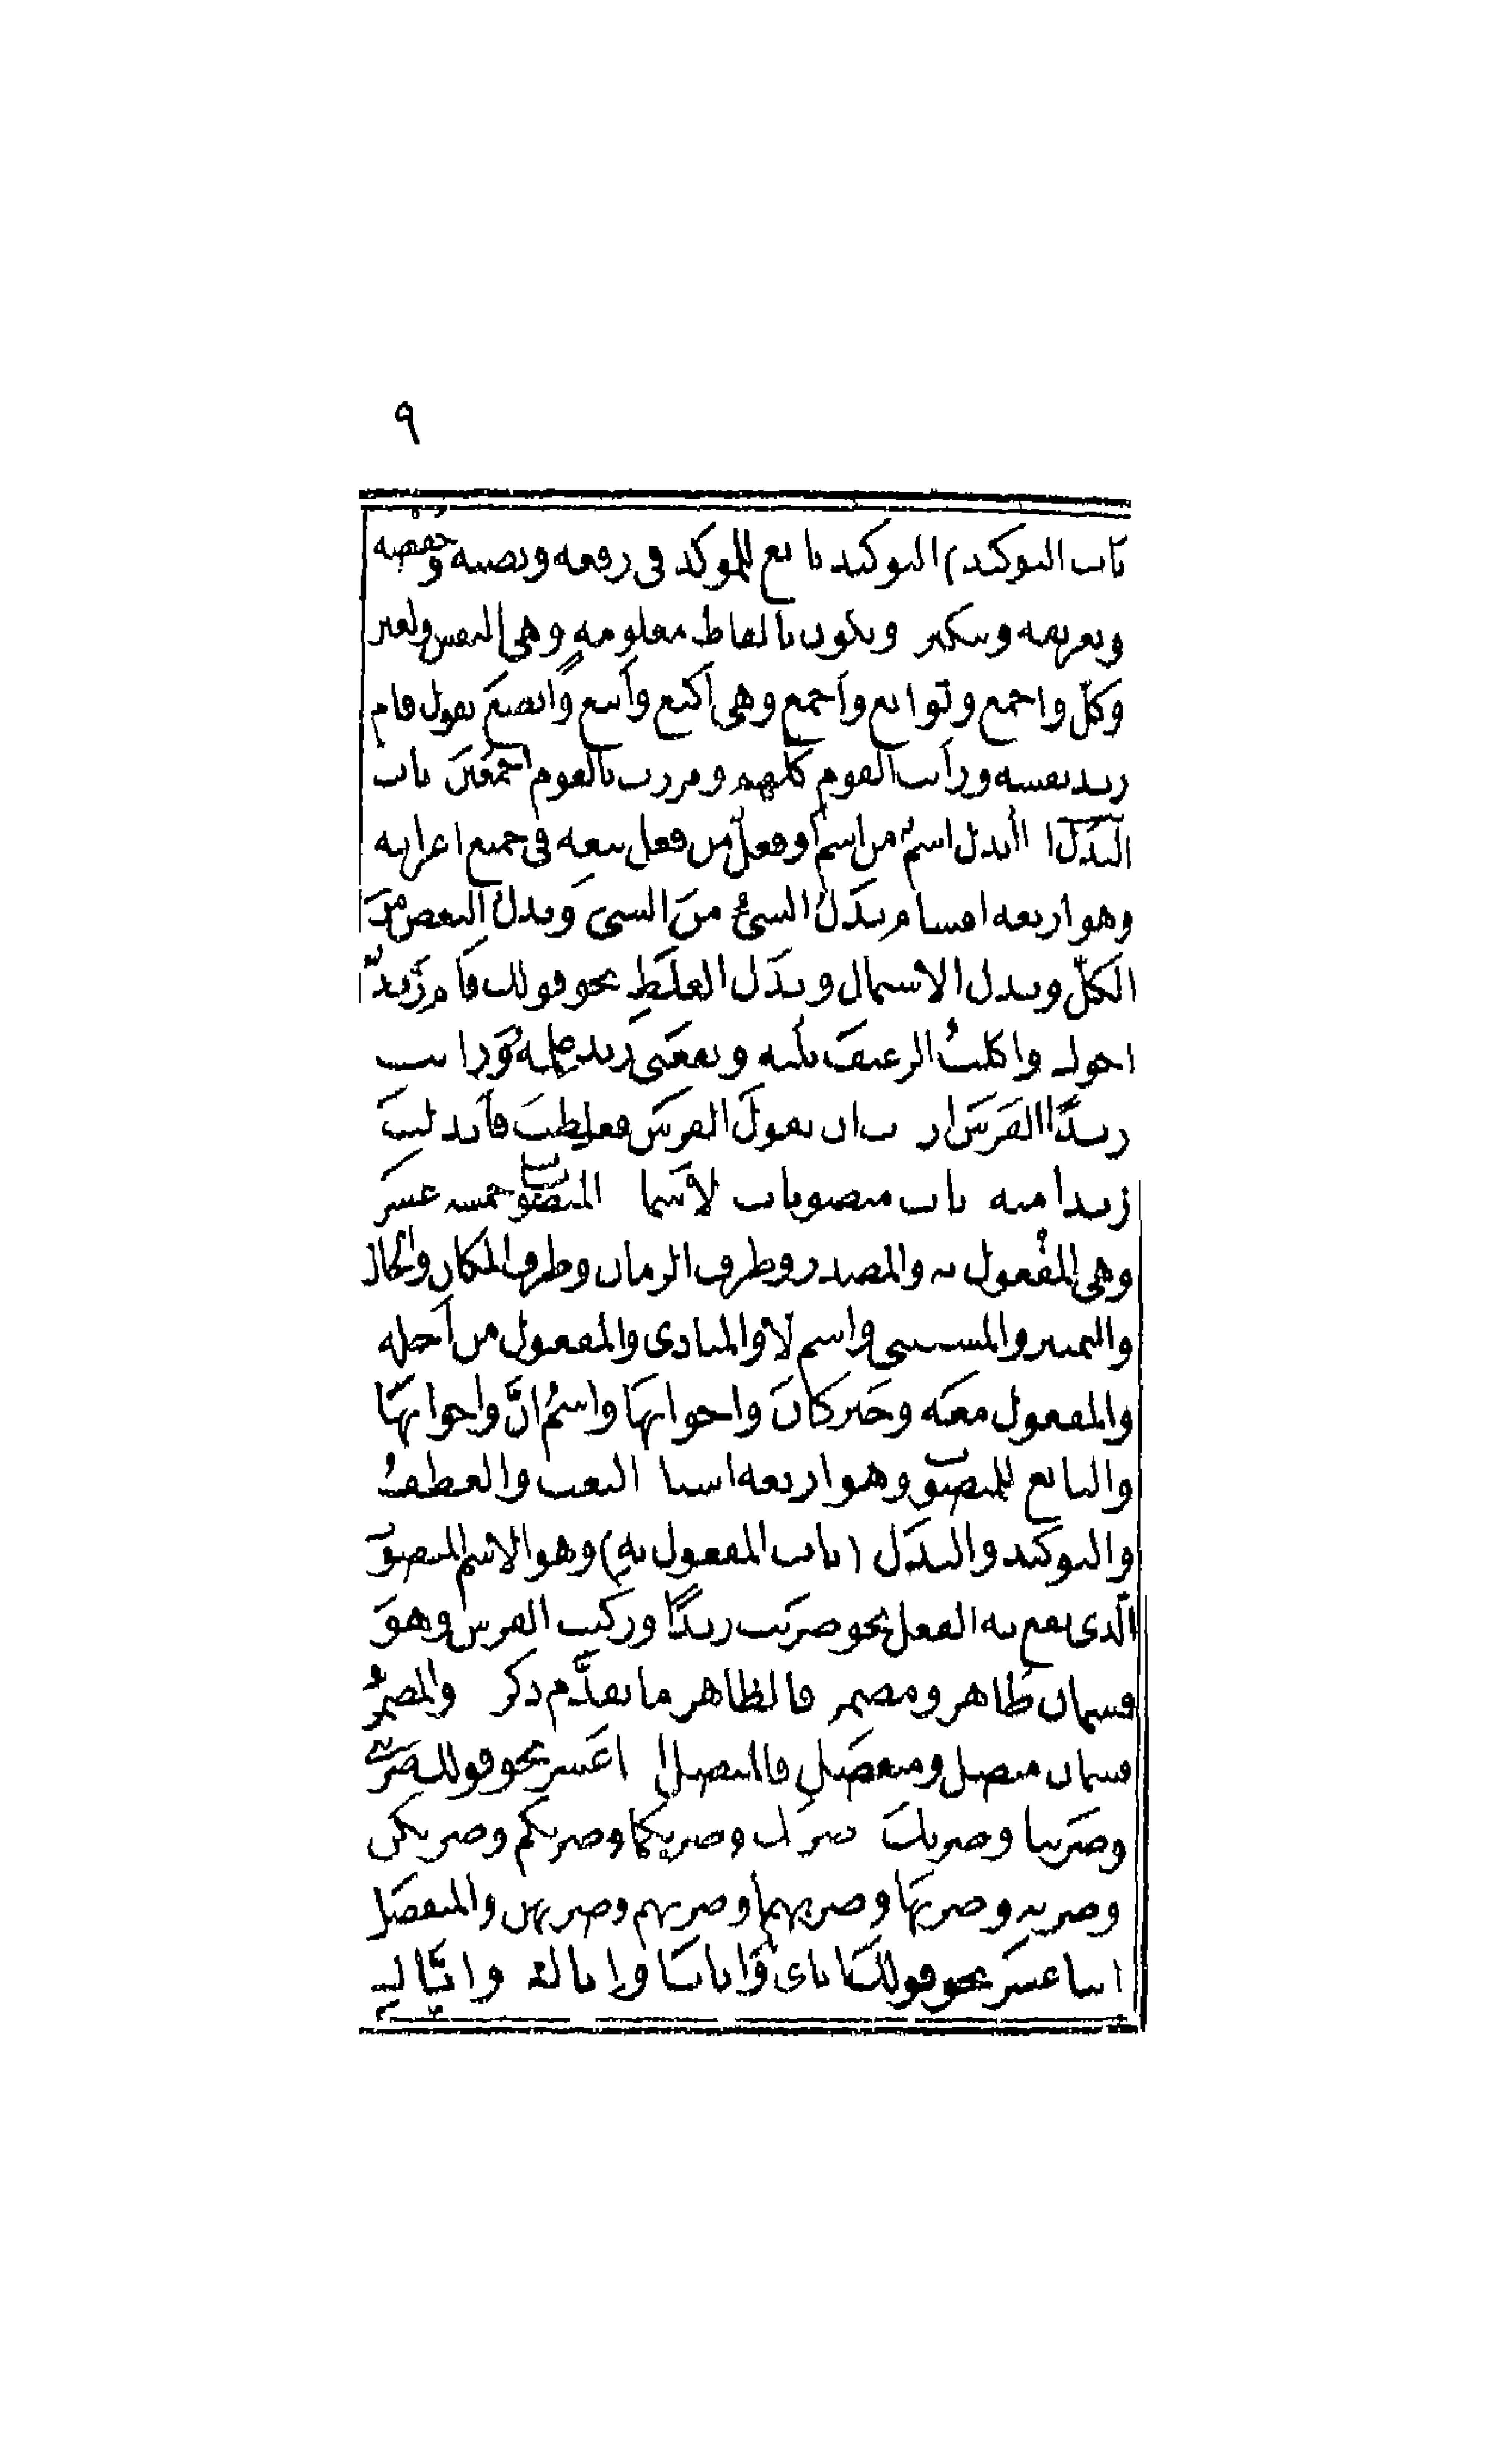 ٩
باب التوكيد) التوكيد تابع للموكد فى رفعه ونصبه وخفضه
وتعريفه وتنكير ويكون بالفاظ معلومه وهى النفس والعين
وكلّ واجمع وتوابع واجمع وهى اكتع وأبتع وأبصع تقول قام
زيد نفسه ورأيت القوم كلهم ومررت بالقوم اجمعين باب
البدل البدل اسمٌ من اسم او فعلٌ من فعل يتبعه فى جميع اعرابه
وهو اربعه اقسام بدل الشىءُ من الشى وبدل البعض من
الكلّ وبدل الاشتمال وبدل الغلط نحو قولك قام زيدٌ
اخوك واكلتُ الرغيف ثلثه ونفعنى زيد علمه ورايت
زيدًا الفرس ان تقول الفرس فغلطت فابدلت
زيدا منه باب منصوبات لاسما المنصوب خمسه عشر
وهى المفعول به والمصدر وظرف الزمان وظرف المكان والحال
والتمييز والمستثنى واسم لا والمنادى والمفعول من أجله
والمفعول معه وخبر كان واخواتها واسمُ انّ واخواتها
والتابع للمنصوب وهو اربعه اشيا النعت والعطفُ
والتوكيد والبدل (باب المفعول به) وهو الاسم المنصوب
الّذى يقع به الفعل نحو ضربت زيدًا وركبت الفرس وهو
قسمان ظاهر ومضمر فالظاهر ما تقدّم ذكر والمضمرُ
قسمان متصل ومنفصل فالمتصل اعشر نحو قولك ضربنى
وضربنا وضربك ضربك وضربكما وضربكم وضربكن
وضربه وضربها وضربهما وضربهم وضربهن والمنفصل
اثنا عشر نحو قولك اياى وايانا واياك واياك